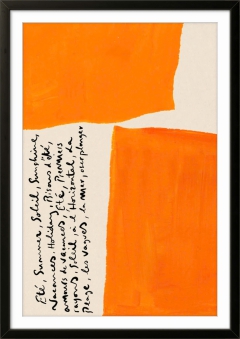 Eté, Summer, Soleil, Sunshine,
Vacances, Holiday, Pisons d'été,
amours de vacances, Eté, Premiers
rayons, Soleil, à l' Horizontal, La
Plage, les vagues, la mer, sur plonger